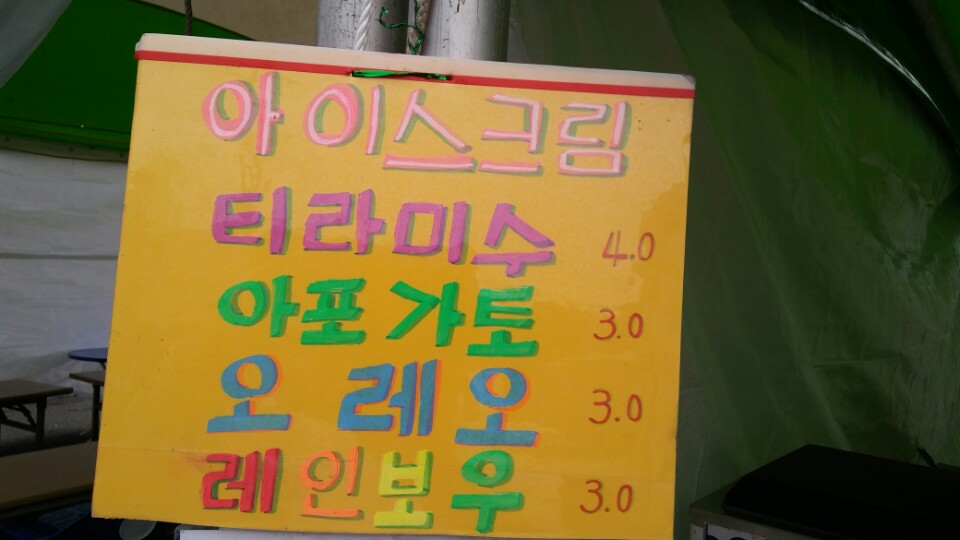 아이스크림
티라미수 4.0
아포가토 3.0
오레오 3.0
레인보우 3.0